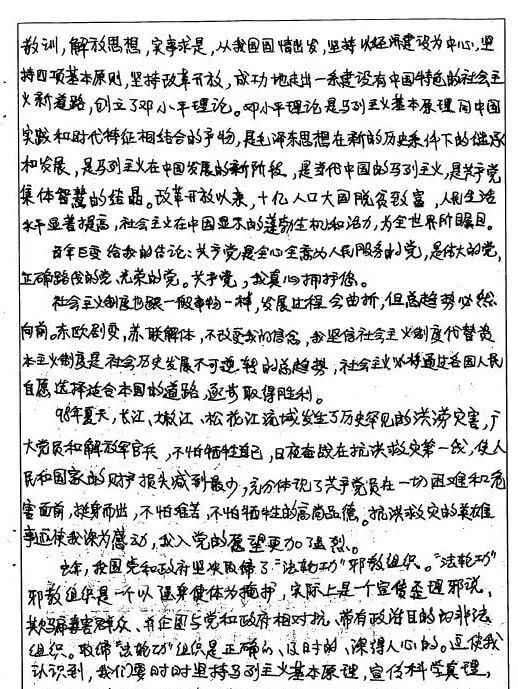 教训，解放思想，实事求是，从我国国情出发，坚持以经济建设为中心，坚
持四项基本原则，坚持改革开放，成功地走出一条建设有中国特色的社会主
义新道路，创立了邓小平理论。邓小平理论是马列主义基本原理同中国
实践和时代特征相结合的产物，是毛泽东思想在新的历史条件下的继承
和发展，是马列主义在中国发展的新阶段，是当代中国的马列主义，是共产党
集体智慧的结晶。改革开放以来，十亿人口大国脱贫致富，人民生活
水平显著提高，社会主义在中国显示的蓬勃生机和活力，为全世界所瞩目。
百年巨变给我的结论：共产党是全心全意为人民服务的党，是伟大的党，
正确路线的党、光荣的党。共产党，我真心拥护你。
社会主义制度也跟一般事物一样，发展过程会曲折，但总趋势必然
向前。东欧剧变，苏联解体，不改变我的信念，我坚信社会主义制度代替资
本主义制度是社会历史发展不可逆转的总趋势，社会主义必将通过各国人民
自愿选择适合本国的道路，逐步取得胜利。
98年夏天，长江、嫩江、松花江流域发生了历史罕见的洪涝灾害，广
大党员和解放军官兵，不怕牺牲自己，日夜奋战在抗洪救灾第一线，使人
民和国家的财产损失减到最少，充分体现了共产党员在一切困难和危
害面前，挺身而出，不怕艰苦，不怕牺牲的高尚品德。抗洪救灾的英雄
事迹使我深为感动，我入党的愿望更加强烈。
去年，我国党和政府坚决取缔了“法轮功”邪教组织。“法轮功”
邪教组织是一个以健身健体为掩护，实际上是一个宣传歪理邪说，
欺骗毒害群众、并企图与党和政府相对抗、带有政治目的的非法
组织。取缔“法轮功”组织是正确的、及时的、深得人心的。这使我
认识到，我们要时时坚持马列主义基本原理，宣传科学真理，